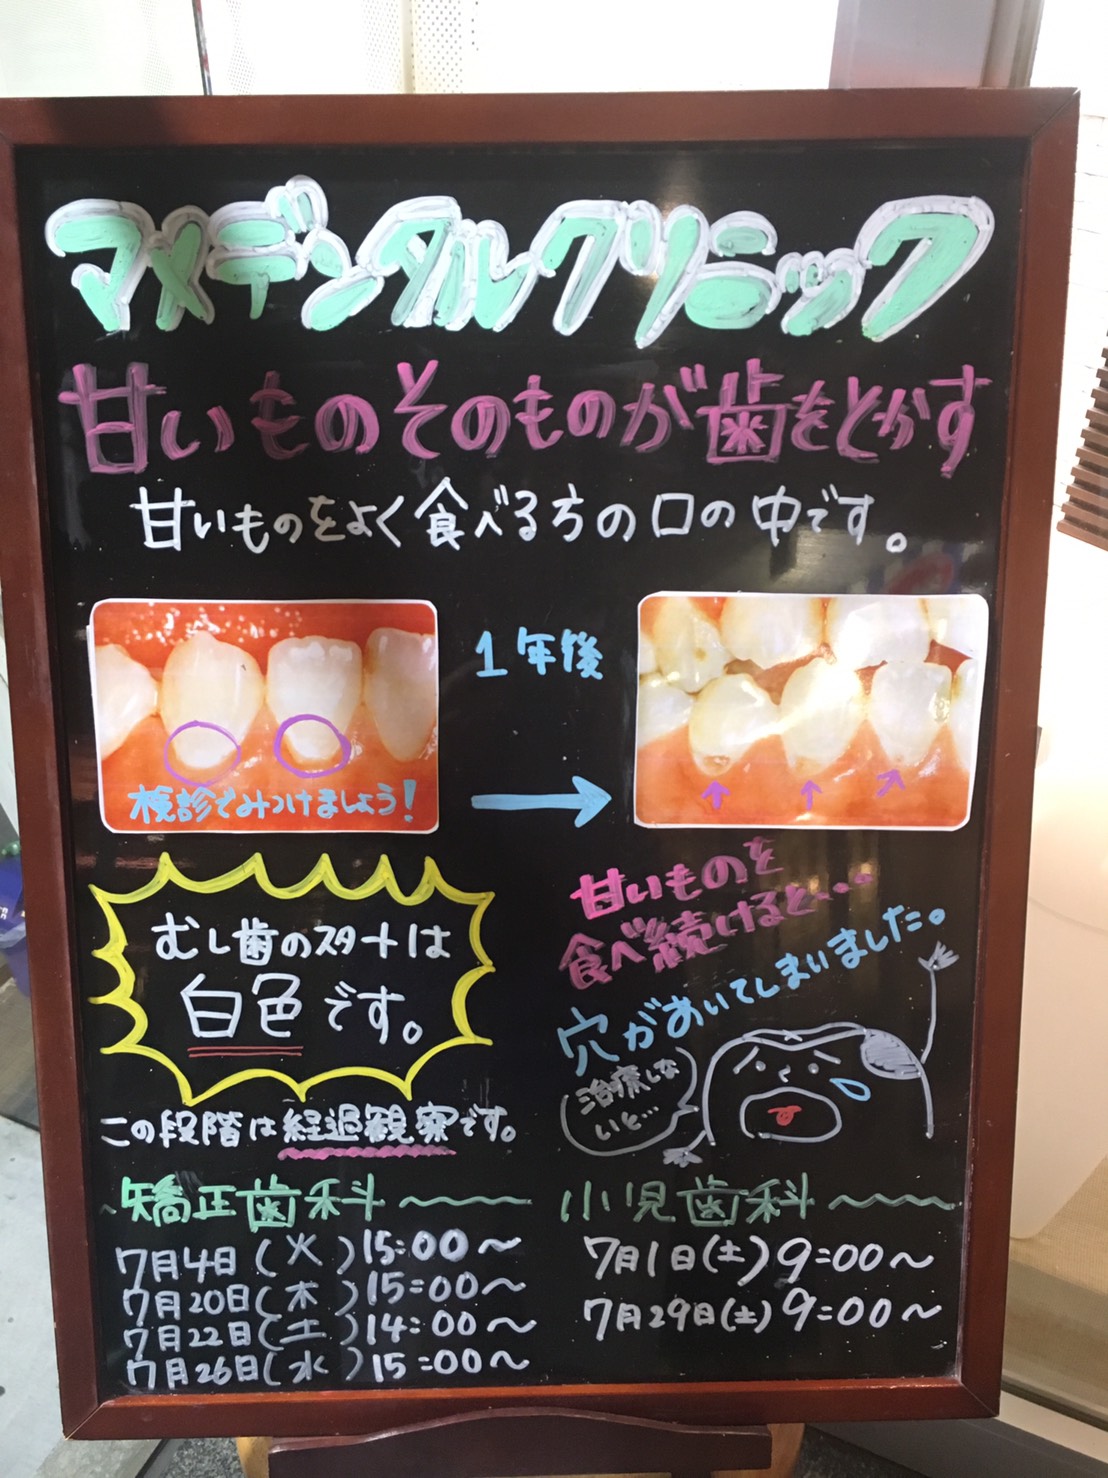 マメデンタルクリニック
甘いものそのものが歯をとかす
甘いものをよく食べる方の口の中です。
1年後
検診でみつけましょう!
むし歯のスタートは
白色です。
この段階は経過観察です。
甘いものを
食べ続けると…
穴があいてしまいました。
治療しな
いと…
矯正歯科
7月4日(火)15:00〜
7月20日(木)15:00〜
7月22日(土)14:00〜
7月26日(水)15:00〜
小児歯科
7月1日(土)9:00〜
7月29日(土)9:00〜